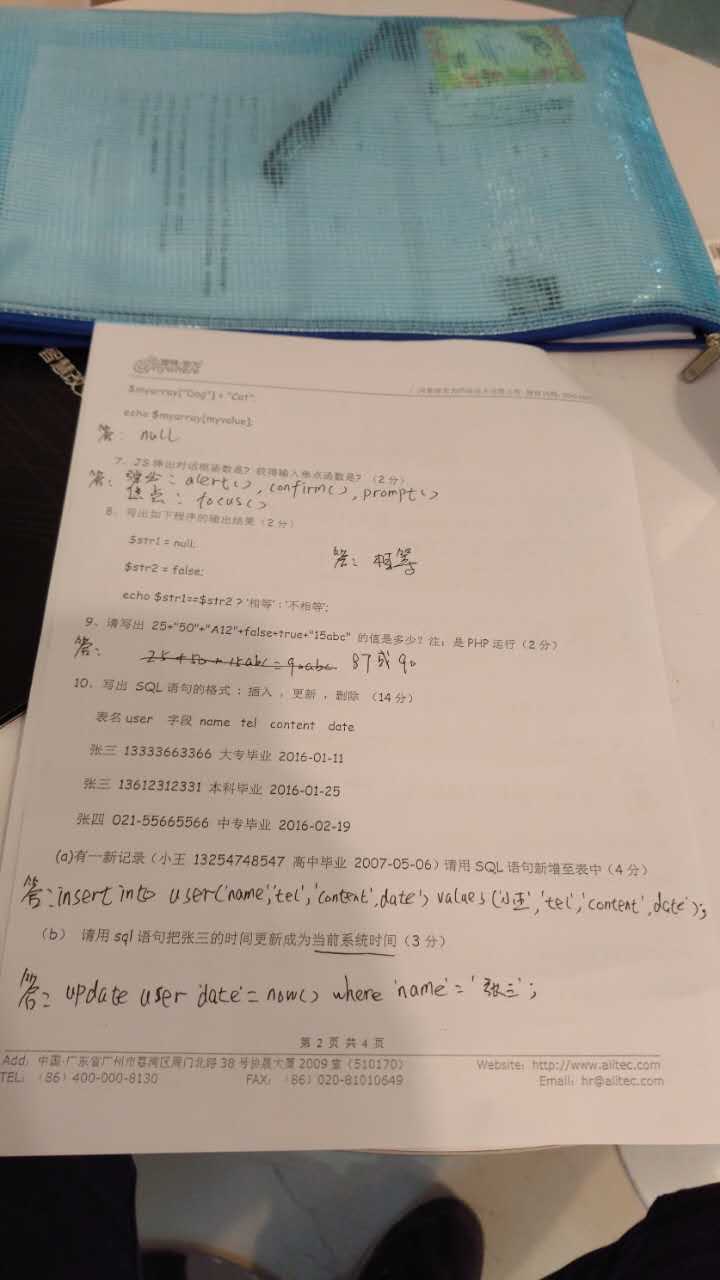 $myarray["Dog"] = "Cat";
echo $myarray[myvalue];
答: null
7、JS 弹出对话框函数是? 获得输入焦点函数是?(2 分)
答: 弹出: alert(), confirm(), prompt()
焦点: focus()
8、写出如下程序的输出结果(2 分)
$str1 = null;
答: 相等
$str2 = false;
echo $str1==$str2 ? '相等' : '不相等';
9、请写出 25+"50"+"A12"+false+true+"15abc" 的值是多少? 注: 是 PHP 运行(2 分)
答: 25+50+15abc=90abc 87或90
10、写出 SQL 语句的格式 : 插入 , 更新 , 删除 (14 分)
表名 user 字段 name tel content date
张三 13333663366 大专毕业 2016-01-11
张三 13612312331 本科毕业 2016-01-25
张四 021-55665566 中专毕业 2016-02-19
(a)有一新记录(小王 13254748547 高中毕业 2007-05-06)请用 SQL 语句新增至表中(4 分)
答: insert into user('name','tel','content',date') values('小王','tel','content',date');
(b) 请用 sql 语句把张三的时间更新成为当前系统时间(3 分)
答: update user 'date'=now() where 'name'='张三';
第 2 页 共 4 页
Add: 中国·广东省广州市荔湾区周门北路 38 号协晟大厦 2009 室 (510170) Website: http://www.ailtec.com
TEL: (86) 400-000-8130 FAX: (86) 020-81010649 Email: hr@ailtec.com